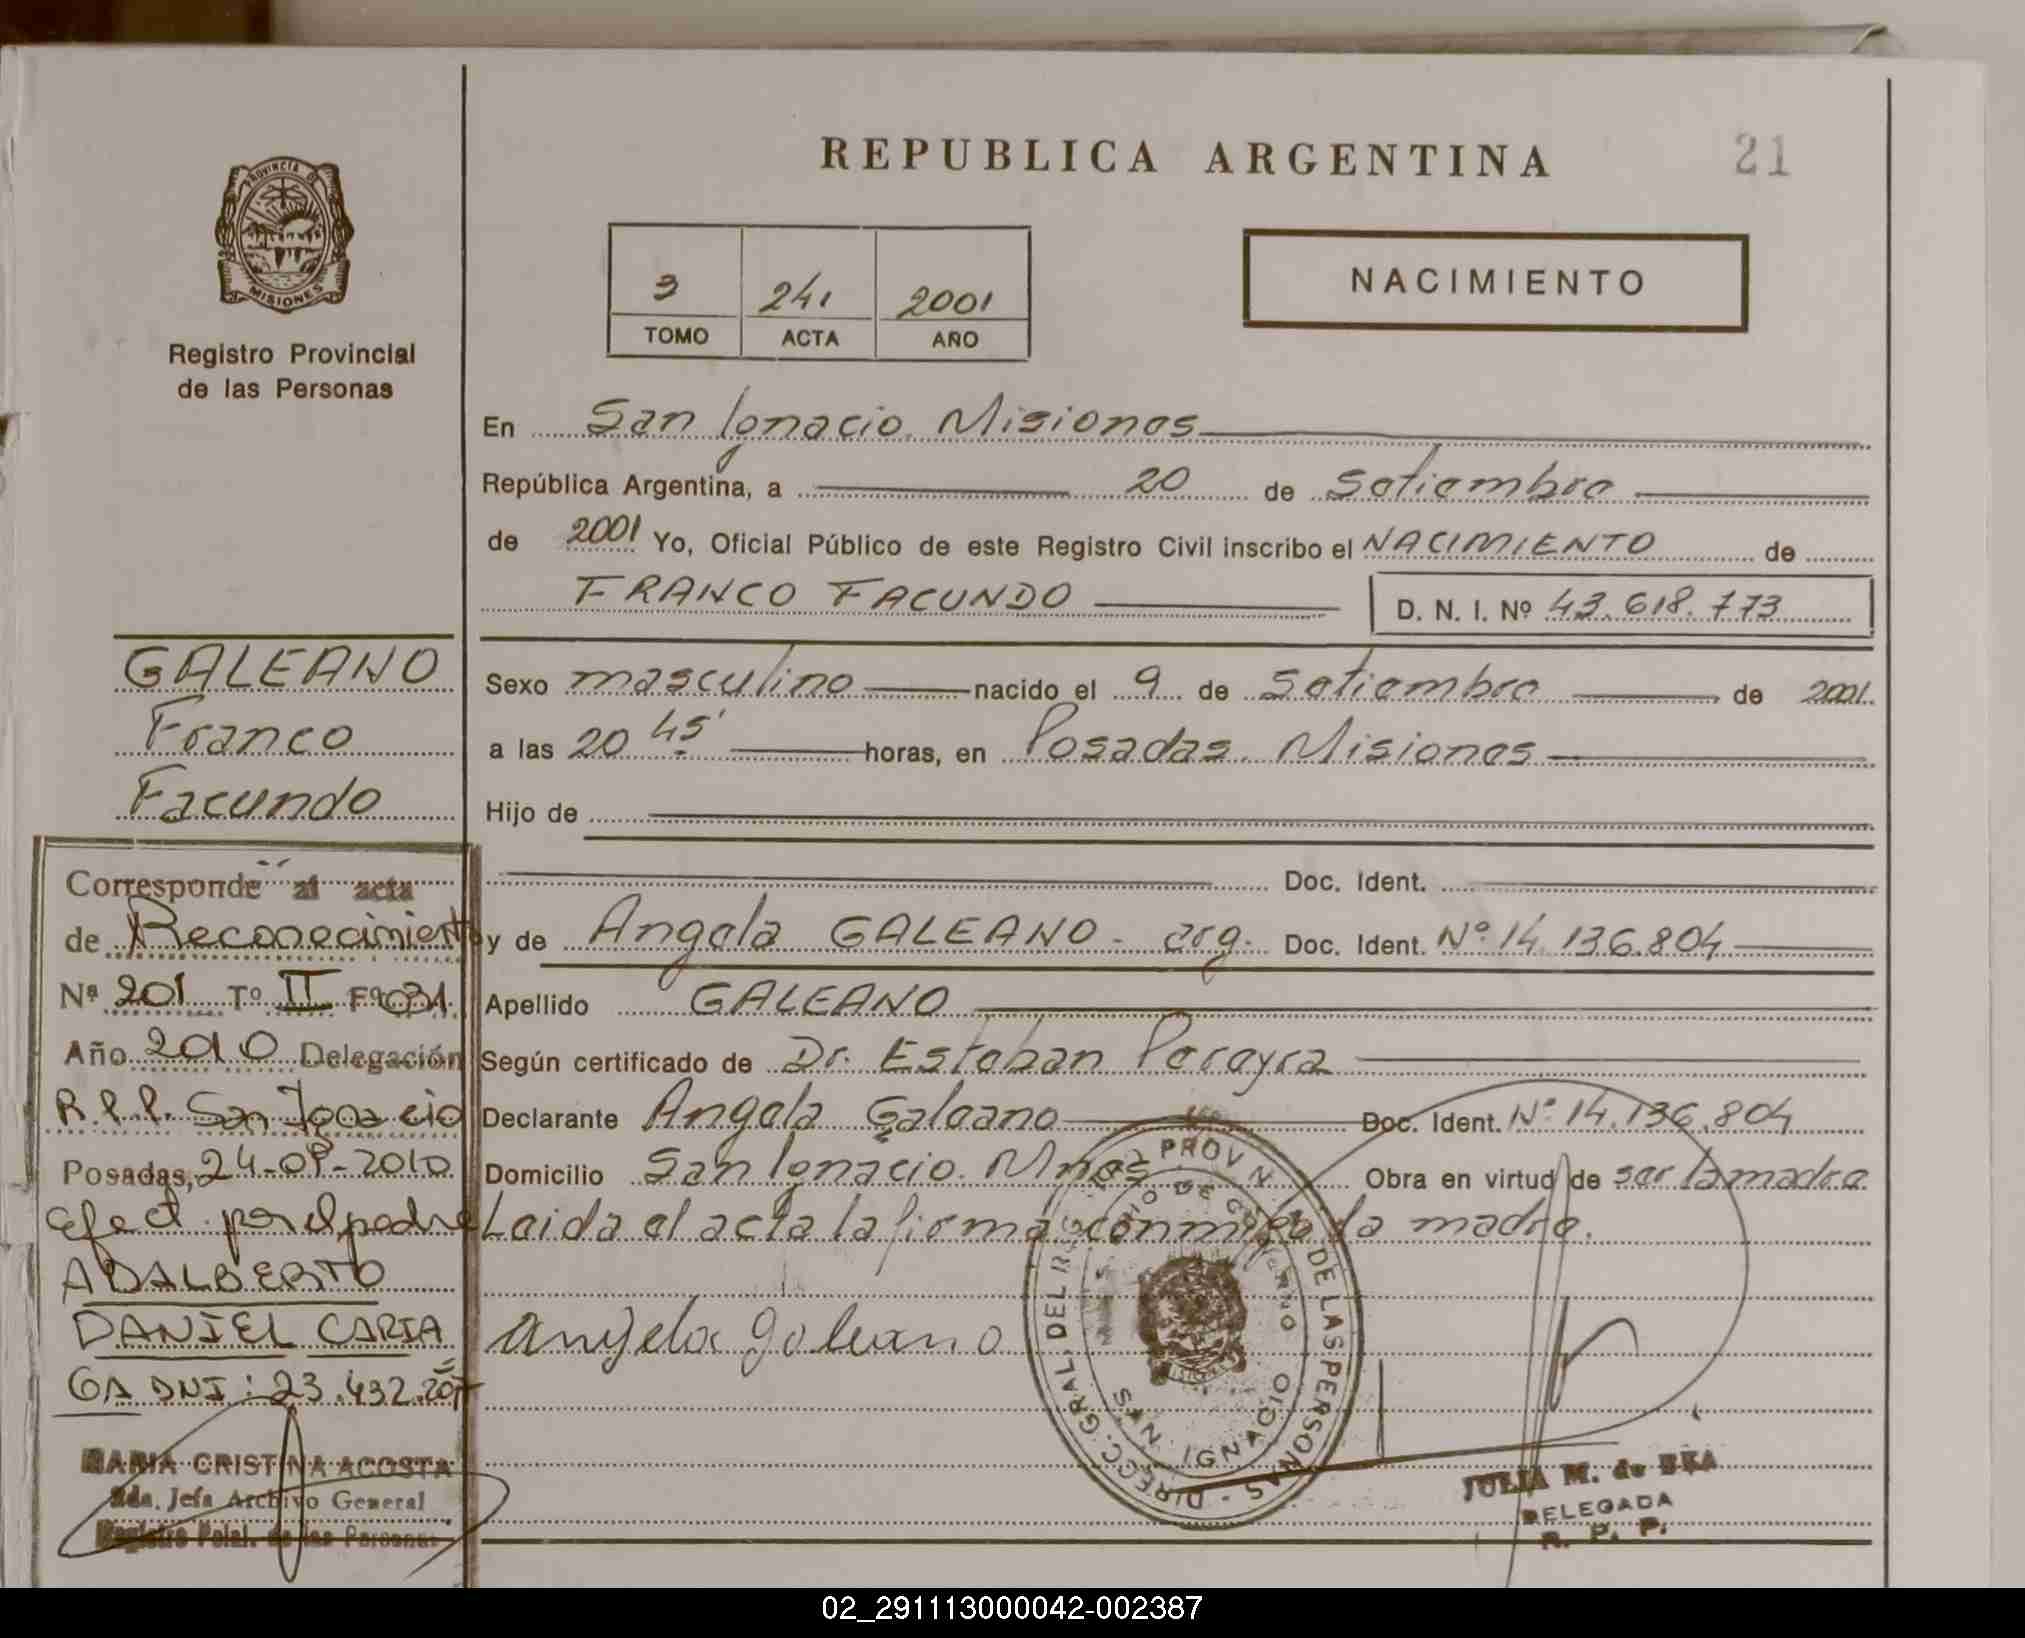 PROVINCIA DE
MISIONES
Registro Provincial
de las Personas
REPUBLICA ARGENTINA
21
3 241 2001
TOMO ACTA AÑO
NACIMIENTO
En San Ignacio Misiones
República Argentina, a 20 de Setiembre
de 2001 Yo, Oficial Público de este Registro Civil inscribo el NACIMIENTO de
FRANCO FACUNDO
D. N. I. Nº 43.618.773
GALEANO
Franco
Facundo
Sexo masculino nacido el 9 de Setiembre de 2001
a las 20 45' horas, en Posadas. Misiones
Hijo de
Doc. Ident.
y de Angela GALEANO - arg. Doc. Ident. Nº 14.136.804
Apellido GALEANO
Según certificado de Dr. Esteban Pereyra
Declarante Angela Galeano Doc. Ident. Nº 14.136.804
Domicilio San Ignacio. Mnes Obra en virtud de ser la madre
Leida el acta la firma conmigo la madre.
Angela galeano
Corresponde al acta
de Reconocimiento
Nª 201 Tº II Fº 031
Año 2010 Delegación
R.P.P. San Ignacio
Posadas, 24-08-2010
efect. por el padre
ADALBERTO
DANIEL CARIA
DNI: 23.432.207
MARIA CRISTINA ACOSTA
2da. Jefa Archivo General
Registro Pcial. de las Personas
DIRECC. GRAL. DEL REG. PROVIN. DE LAS PERSONAS
SAN IGNACIO
JULIA M. de
DELEGADA
R. P. P.
02_291113000042-002387